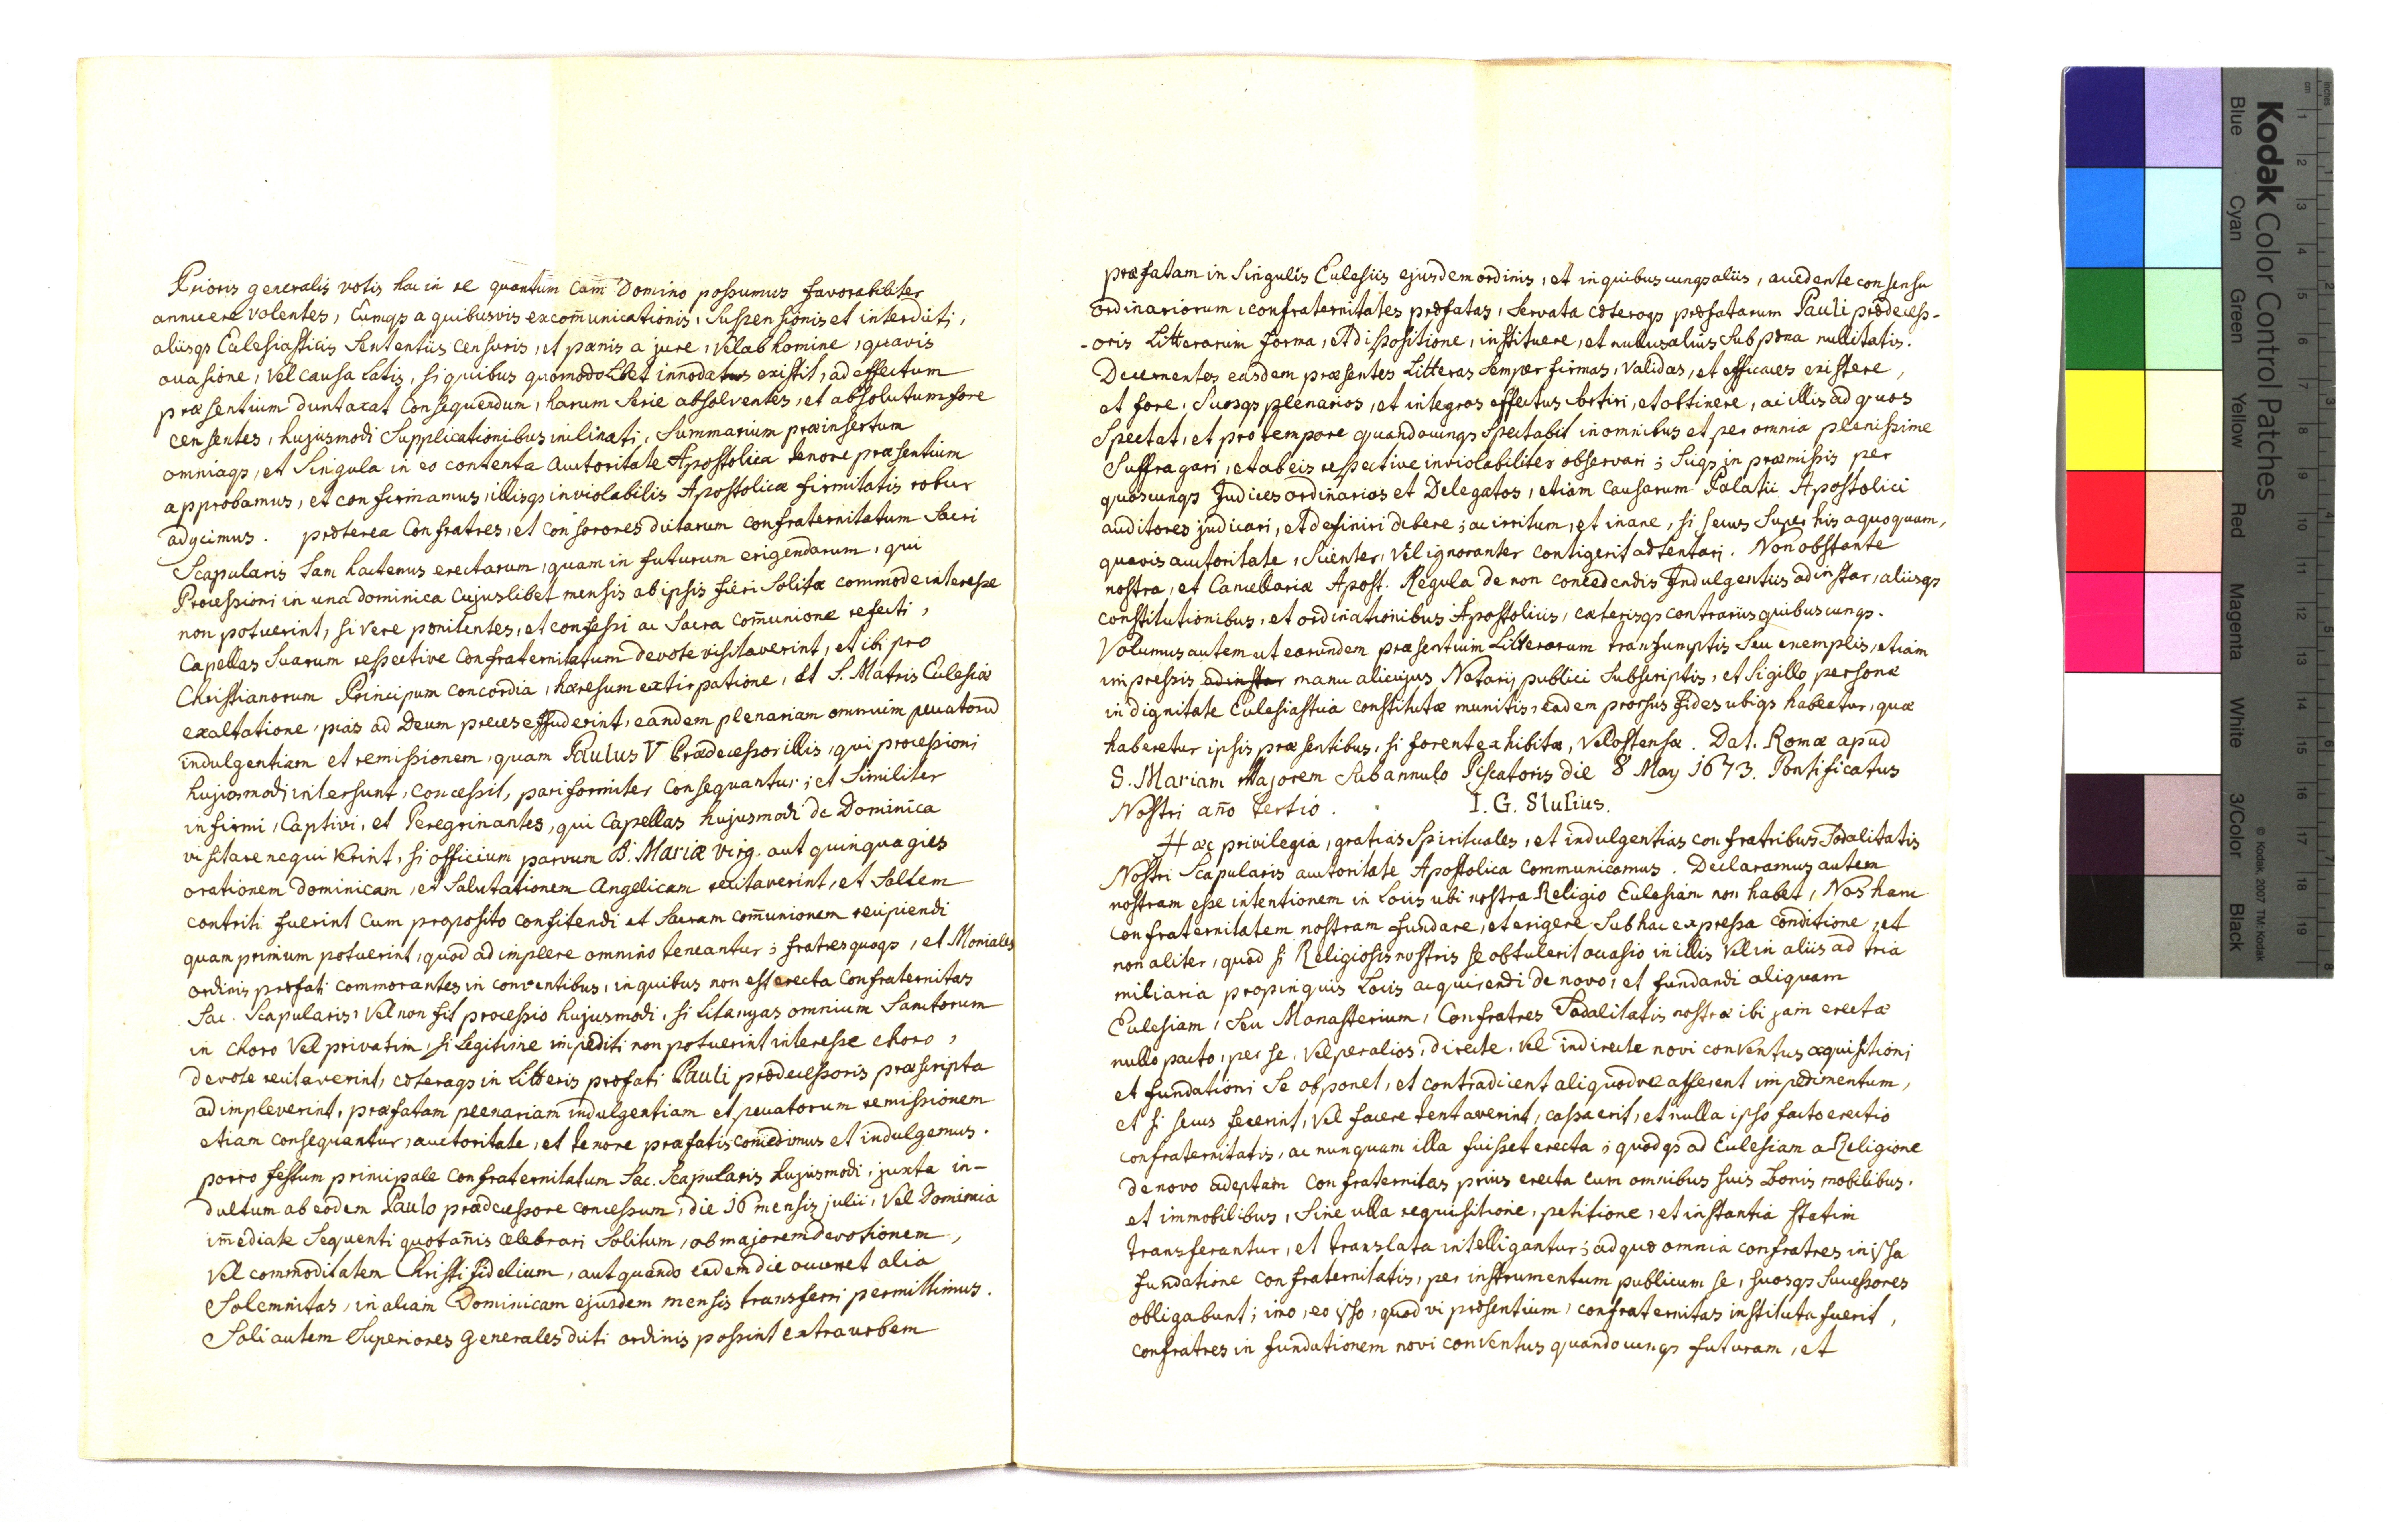 Prioris generalis votis hac in re quantum cam Domino possumus favorabiliter
annuere volentes, Eumqꝫ a quibusvis excom̄unicationis, Suspensionis et interdicti,
aliisqꝫ Eclesiasticis Sententiis censuris, et pænis a jure, vel ab homine, quavis
occasione, vel causa latis, si quibus quomodolibet innodatus existit, ad effectum
præsentium duntaxat Consequendum, harum Serie absolventes, et absolutum fore
censentes, hujusmodi Supplicationibus inclinati, Summarium præinsertum
omniaqꝫ, et Singula in eo contenta Auctoritate Apostolica tenore præsentium
approbamus, et confirmamus, illisqꝫ inviolabilis Apostolicæ firmitatis robur
adjicimus. præterea Confratres, et Consorores dictarum confraternitatum Sacri
Scapularis Tam hactenus erectarum, quam in futurum erigendarum, qui
Processioni in una dominica Cujuslibet mensis ab ipsis fieri Solitæ commode interesse
non potuerint, si vere pœnitentes, et confessi ac Sacra com̄unione refecti,
Capellas Suarum respective Confraternitatum devote visitaverint, et ibi pro
Christianorum Principum concordia, hæresum extirpatione, et S. Matris Eclesiæ
exaltatione, pias ad Deum preces effuderint, eandem plenariam omnium peccatorū
indulgentiam et remissionem, quam Paulus V Prædecessor illis, qui processioni
hujusmodi intersunt, concessit, pariformiter Consequantur; et Similiter
infirmi, Captivi, et Peregrinantes, qui Capellas hujusmodi de Dominica
visitare nequiverint, si officium parvum B. Mariæ virg. aut quinquagies
orationem dominicam, et Salutationem Angelicam recitaverint, et Saltem
contriti fuerint Cum proposito confitendi et Sacram com̄unionem recipiendi
quam primum potuerint, quod adimplere omnino teneantur; fratres quoqꝫ, et Moniales
ordinis præfati commorantes in conventibus, in quibus non est erecta Confraternitas
Sac. Scapularis, vel non fit processio hujusmodi, si Litanyas omnium Sanctorum
in choro vel privatim, si Legitime impediti non potuerint interesse choro,
devote recitaverint, cæteraqꝫ in Litteris præfati Pauli prædecessoris præscripta
adimpleverint, præfatam plenariam indulgentiam et peccatorum remissionem
etiam consequantur, auctoritate, et tenore præfatis concedimus et indulgemus.
porro festum principale Confraternitatum Sac. Scapularis hujusmodi, juxta in-
dultum ab eodem Paulo prædecessore concessum, die 16 mensis julii, vel Dominica
im̄ediate Sequenti quotan̄is celebrari Solitum, ob majorem devotionem,
vel commoditatem Christi fidelium, aut quando eadem die occurret alia
Solemnitas, in aliam Dominicam ejusdem mensis transferri permittimus.
Soli autem Superiores Generales dicti ordinis possint extra urbem
præfatam in Singulis Eclesiis ejusdem ordinis, et in quibuscunqꝫ aliis, accedente consensu
ordinariorum, confraternitates præfatas, servata cæteroqꝫ præfatarum Pauli prædecess-
-oris Litterarum forma, et dispositione, instituere, et nullus alius Sub pœna nullitatis.
Decernentes easdem præsentes Litteras Semper firmas, validas, et efficaces existere,
et fore, Suosqꝫ plenarios, et integros effectus Sortiri, et obtinere, ac illis ad quos
Spectat, et pro tempore quandocunqꝫ Spectabit in omnibus et per omnia plenissime
Suffragari, et ab eis respective inviolabiliter observari; Sicqꝫ in præmissis per
quoscunqꝫ Judices ordinarios et Delegatos, etiam Causarum Palatii Apostolici
auditores judicari, et definiri debere; ac irritum, et inane, si secus Super his a quoquam,
quavis auctoritate, Scienter, vel ignoranter contigerit adtentari. Non obstante
nostra, et Cancellariæ Apost. Regula de non concedendis Indulgentiis ad instar, aliisqꝫ
constitutionibus, et ordinationibus Apostolicis, cæterisqꝫ contrariis quibuscunqꝫ.
Volumus autem ut earundem præsentium Litterarum transumptis Seu exemplis, etiam
impressis ad instar manu alicujus Notarij publici Subscriptis, et Sigillo personæ
in dignitate Eclesiastica constitutæ munitis, eadem prorsus fides ubiqꝫ habeatur, quæ
haberetur ipsis præsentibus, si forent exhibitæ, vel ostensæ. Dat. Romæ apud
S. Mariam Majorem Sub annulo Piscatoris die 8 May 1673. Pontificatus
Nostri an̄o tertio. I. G. Slusius.
Hæc privilegia, gratias Spirituales, et indulgentias confratribus Sodalitatis
Nostri Scapularis auctoritate Apostolica Communicamus. Declaramus autem
nostram esse intentionem in Locis ubi nostra Religio Eclesiam non habet, Nos hanc
confraternitatem nostram fundare, et erigere Sub hac expressa conditione, et
non aliter, quod si Religiosis nostris se obtulerit occasio in illis vel in aliis ad tria
miliaria propinquis Locis acquirendi de novo, et fundandi aliquam
Eclesiam, Seu Monasterium, Confratres Sodalitatis nostræ ibi jam erectæ
nullo pacto, per se, vel per alios, directe, vel indirecte novi conventus æquisitioni
et fundationi Se opponet, et contradicent aliquodve afferent impedimentum,
et si secus fecerint, vel facere tentaverint, cassa erit, et nulla ipso facto erectio
confraternitatis, ac nunquam illa fuisset erecta; quodqꝫ ad Eclesiam a Religione
de novo adeptam confraternitas prius erecta cum omnibus suis bonis mobilibus.
et immobilibus, Sine ulla requisitione, petitione, et instantia statim
transferantur, et translata intelligantur; ad quæ omnia confratres in ipsa
fundatione confraternitatis, per instrumentum publicum se, suosqꝫ Successores
obligabunt; imo, eo ipso, quod vi præsentium, confraternitas instituta fuerit,
confratres in fundationem novi conventus quandocunqꝫ futuram, et
Kodak Color Control Patches
Blue Cyan Green Yellow Red Magenta White 3/Color Black
© Kodak, 2007 TM: Kodak
inches 1 2 3 4 5 6 7 8
cm 1 2 3 4 5 6 7 8 9 10 11 12 13 14 15 16 17 18 19